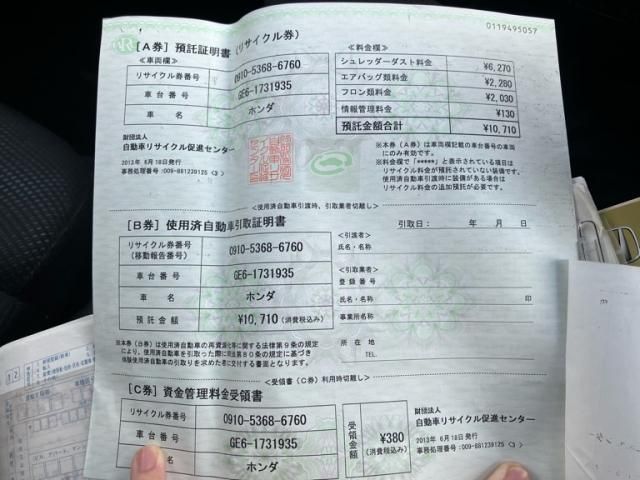 0119495057
[A券] 預託証明書 (リサイクル券)
<車両欄>
リサイクル券番号 0910-5368-6760
車台番号 GE6-1731935
車名 ホンダ
財団法人
自動車リサイクル促進センター
2013年 6月18日発行
事務処理番号:009-881239125 <3>
<料金欄>
シュレッダーダスト料金 ¥6,270
エアバッグ類料金 ¥2,280
フロン類料金 ¥2,030
情報管理料金 ¥130
預託金額合計 ¥10,710
※本券(A券)は車両欄記載の車台番号の車両
にのみ有効です。
※料金欄で「*****」と表示されている項目は
リサイクル料金が預託されていない装備です。
使用済自動車引渡時に装備がある場合は
リサイクル料金の追加預託が必要です。
<使用済自動車引渡時、引取業者切離し>
[B券] 使用済自動車引取証明書
引取日: 年 月 日
リサイクル券番号
(移動報告番号) 0910-5368-6760
車台番号 GE6-1731935
車名 ホンダ
預託金額 ¥10,710 (消費税込み)
<引渡者>
氏名・名称
<引取業者>
登録番号
氏名・名称 印
事業所名称
所在地
TEL.
※本券(B券)は使用済自動車の再資源化等に関する法律第9条の規定
により、使用済自動車を引取った際に同法第80条の規定に基づき
使用済自動車の引取りを求めた者に交付する書面となります。
<受領書(C券)利用時切離し>
[C券] 資金管理料金受領書
リサイクル券番号 0910-5368-6760
車台番号 GE6-1731935
車名 ホンダ
受領金額 ¥380
(消費税込み)
財団法人
自動車リサイクル促進センター
2013年 6月18日発行
事務処理番号:009-881239125 <3>